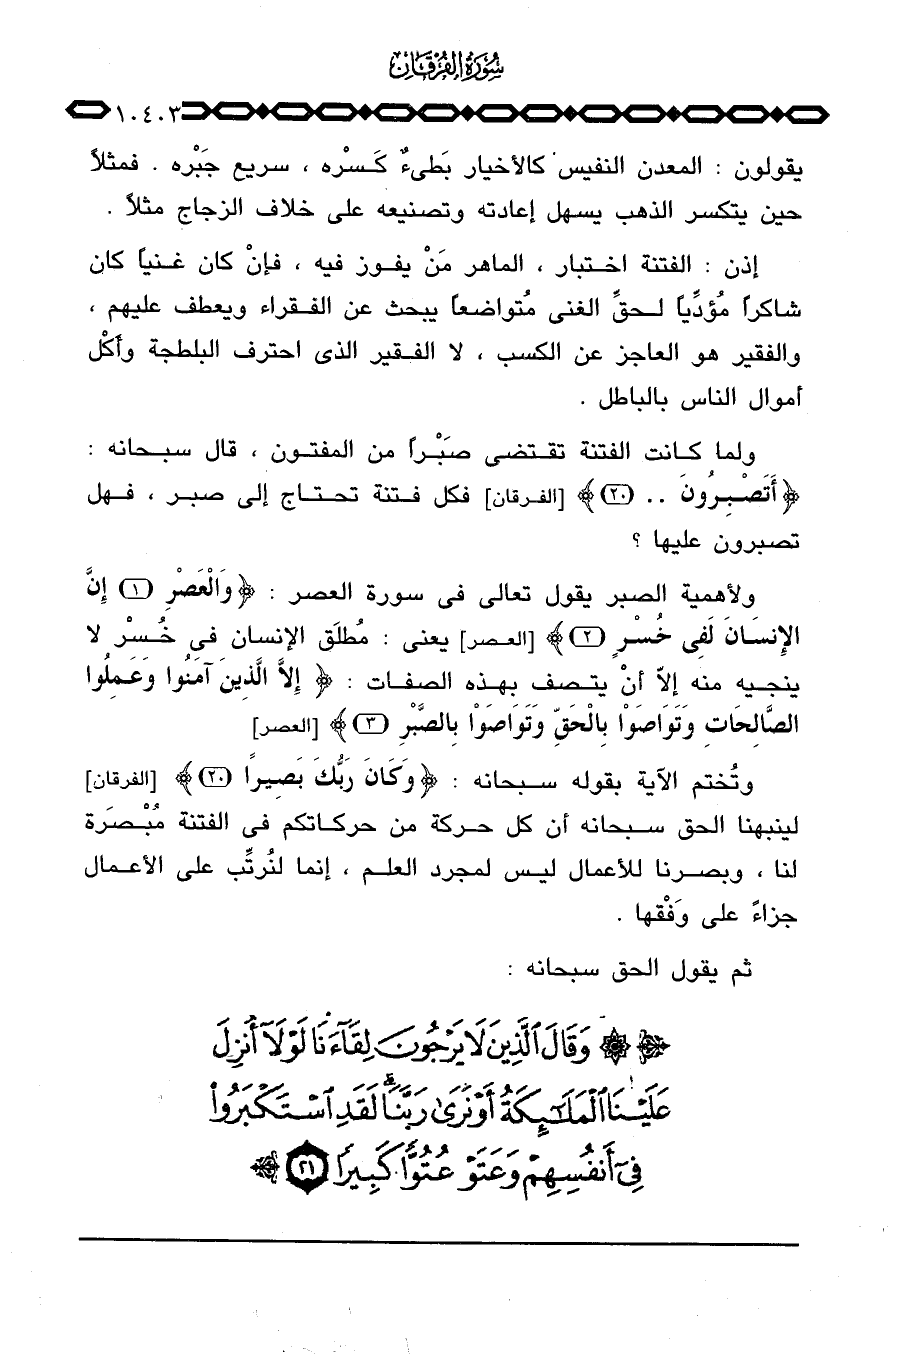 سُورَةُ الفُرْقَانِ
١٠٤٠٣
يقولون : المعدن النفيس كالأخيار بَطيءٌ كَسْره ، سريع جَبْره . فمثلاً
حين يتكسر الذهب يسهل إعادته وتصنيعه على خلاف الزجاج مثلاً .
إذن : الفتنة اختبار ، الماهر مَنْ يفوز فيه ، فإنْ كان غنياً كان
شاكراً مُؤدِّياً لحقِّ الغنى مُتواضعاً يبحث عن الفقراء ويعطف عليهم ،
والفقير هو العاجز عن الكسب ، لا الفقير الذى احترف البلطجة وأكْل
أموال الناس بالباطل .
ولما كانت الفتنة تقتضى صَبْراً من المفتون ، قال سبحانه :
﴿ أَتَصْبِرُونَ .. (٢٠) ﴾ [الفرقان] فكل فتنة تحتاج إلى صبر ، فهل
تصبرون عليها ؟
ولأهمية الصبر يقول تعالى فى سورة العصر : ﴿ وَالْعَصْرِ (١) إِنَّ
الإِنسَانَ لَفِي خُسْرٍ (٢) ﴾ [العصر] يعنى : مُطلَق الإنسان فى خُسْر لا
ينجيه منه إلاّ أنْ يتصف بهذه الصفات : ﴿ إِلاَّ الَّذِينَ آمَنُوا وَعَمِلُوا
الصَّالِحَاتِ وَتَوَاصَوْا بِالْحَقِّ وَتَوَاصَوْا بِالصَّبْرِ (٣) ﴾ [العصر]
وتُختم الآية بقوله سبحانه : ﴿ وَكَانَ رَبُّكَ بَصِيراً (٢٠) ﴾ [الفرقان]
لينبهنا الحق سبحانه أن كل حركة من حركاتكم فى الفتنة مُبْصَرة
لنا ، وبصرنا للأعمال ليس لمجرد العلم ، إنما لنُرتِّب على الأعمال
جزاءً على وَفْقها .
ثم يقول الحق سبحانه :
﴿ ۞ وَقَالَ ٱلَّذِينَ لَا يَرْجُونَ لِقَآءَنَا لَوْلَآ أُنزِلَ
عَلَيْنَا ٱلْمَلَـٰٓئِكَةُ أَوْ نَرَىٰ رَبَّنَا ۗ لَقَدِ ٱسْتَكْبَرُوا۟
فِىٓ أَنفُسِهِمْ وَعَتَوْ عُتُوًّا كَبِيرًا (٢١) ﴾